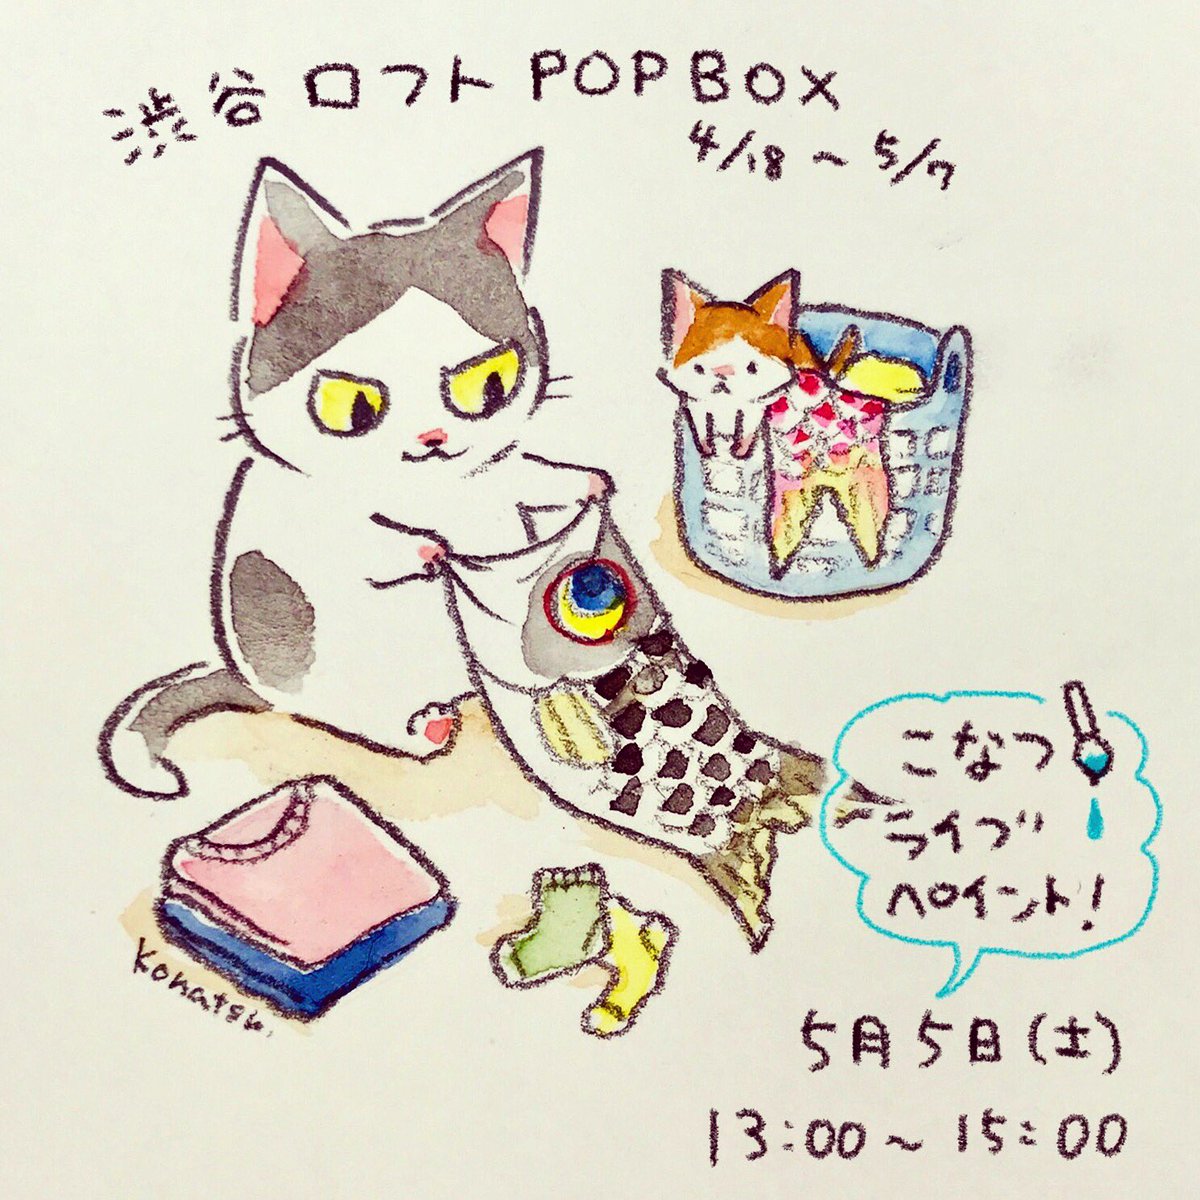 渋谷ロフトPOP BOX
4/18〜5/7
こなつ
ライブ
ペイント!
5月5日(土)
13:00〜15:00
Konatsu.